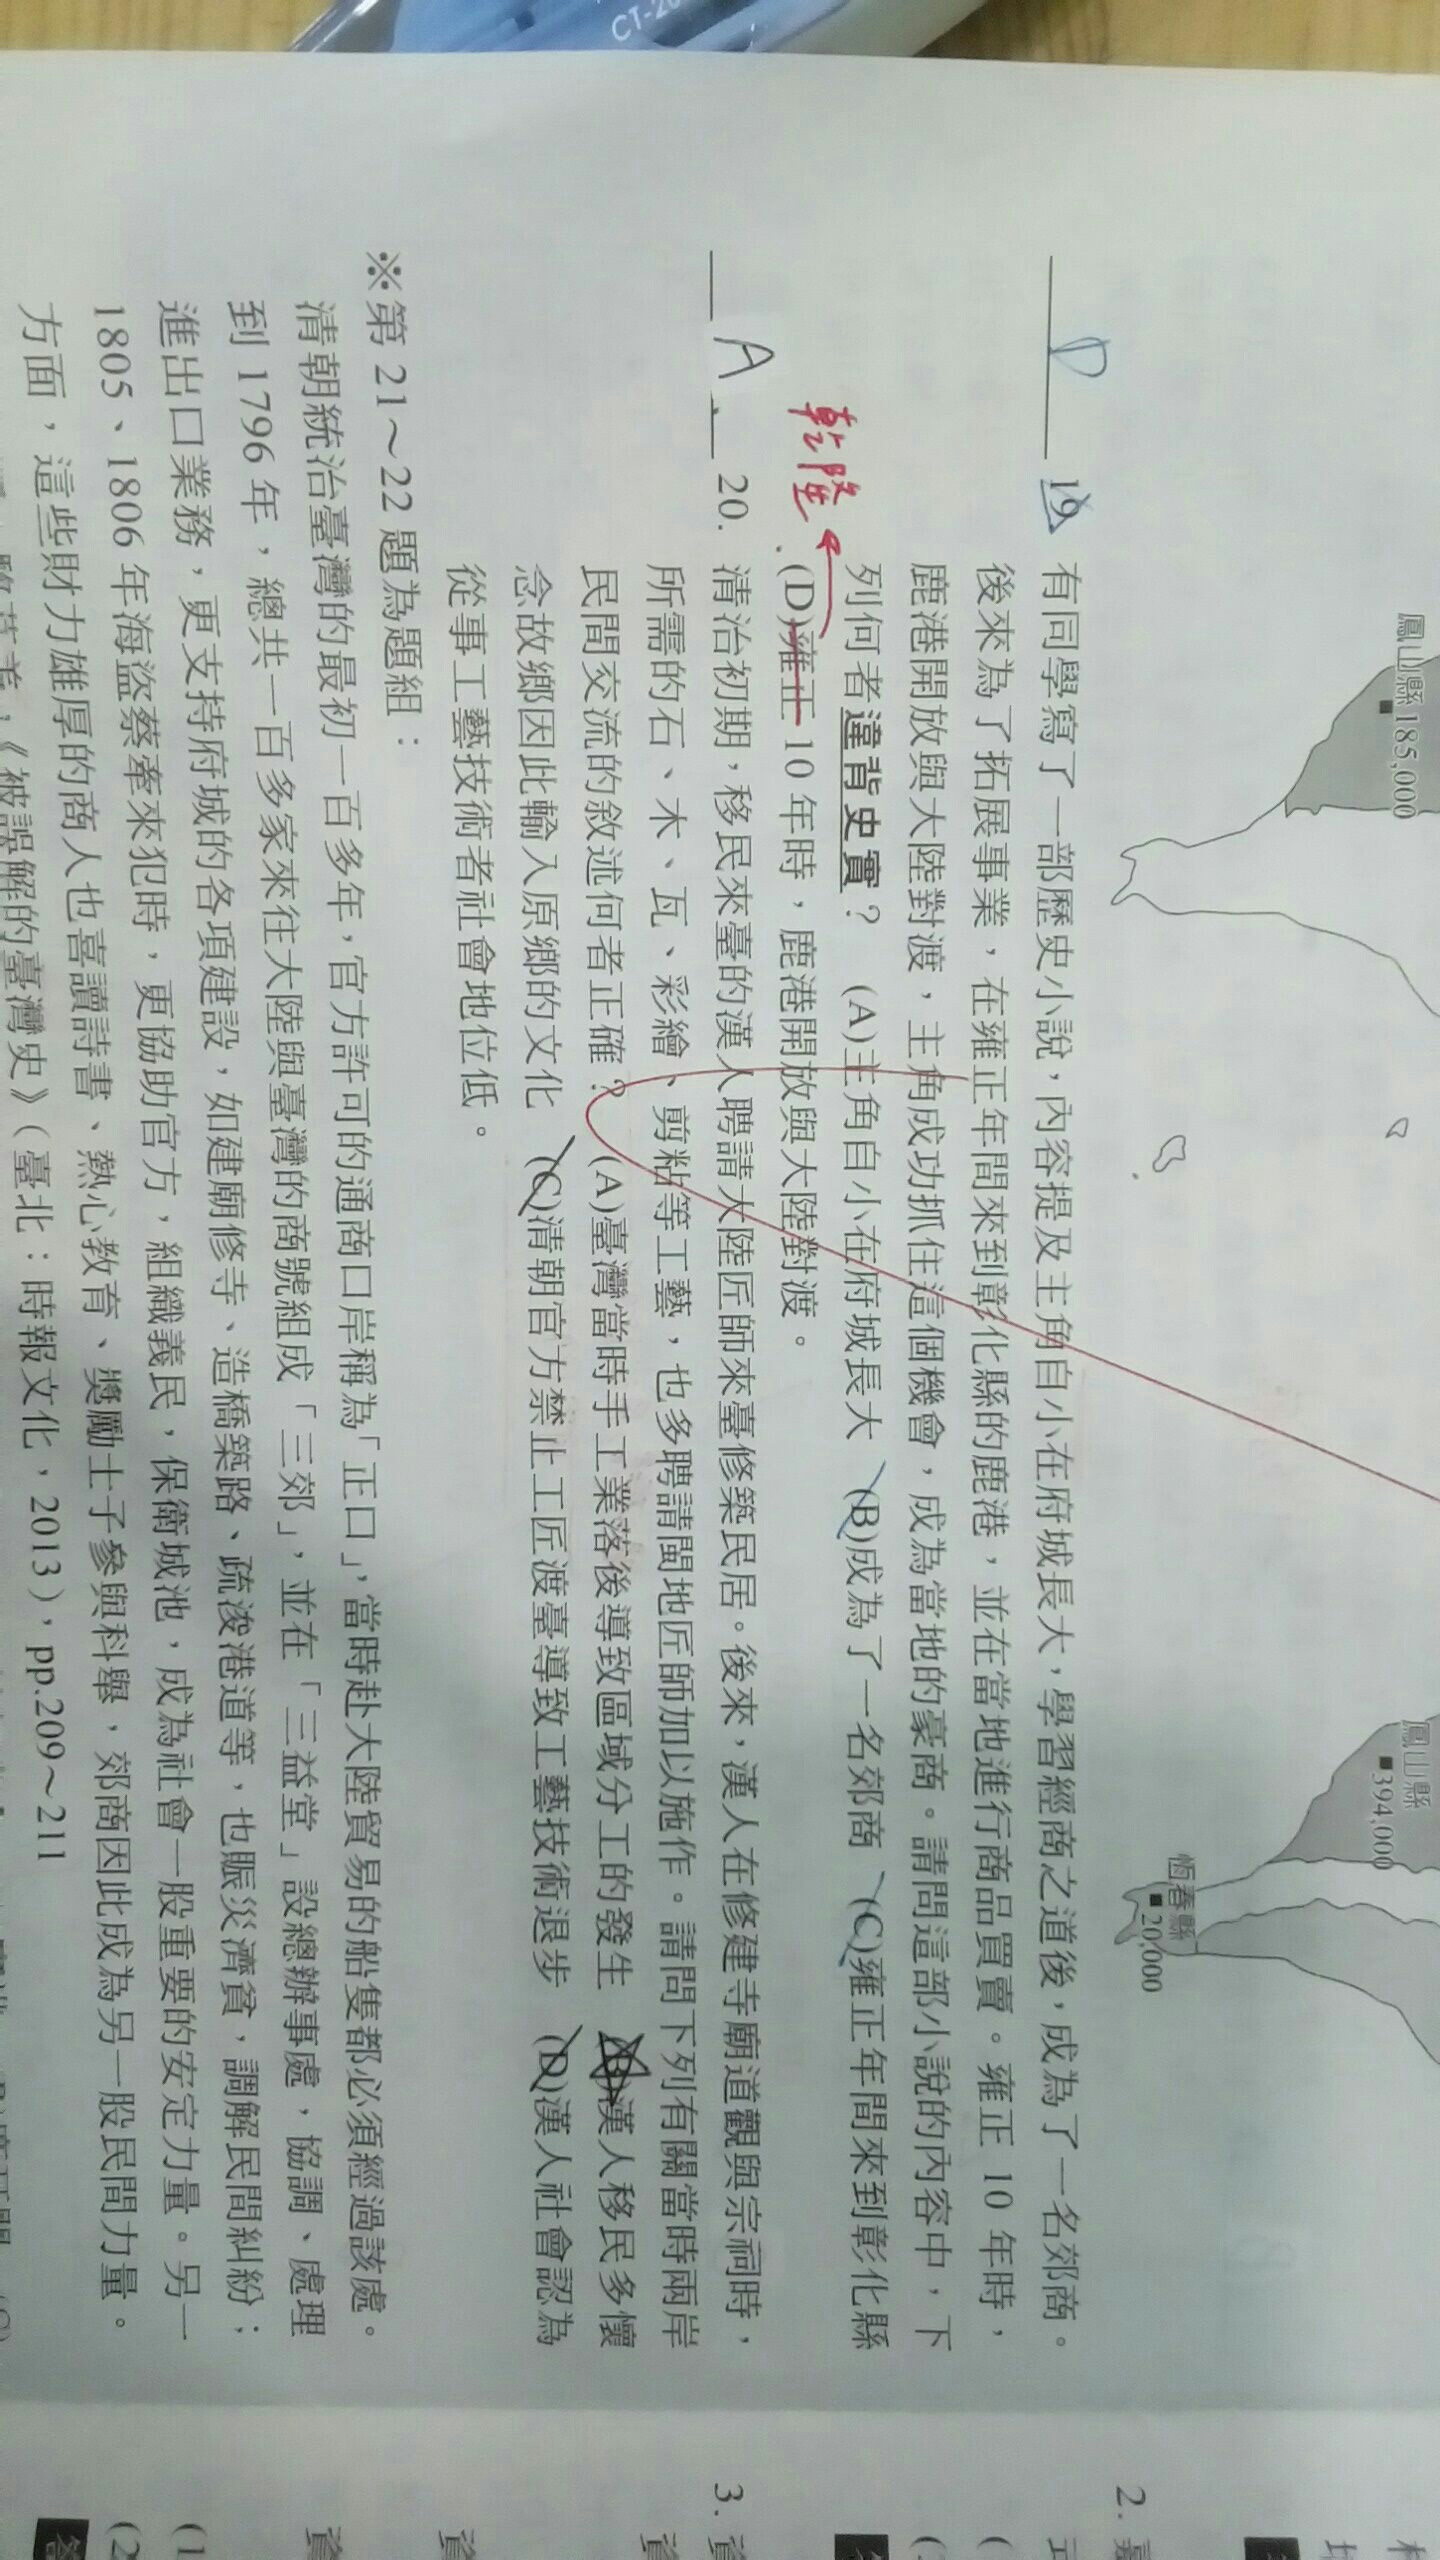 CT-20
鳳山縣
185,000
鳳山縣
394,000
恆春縣
20,000
D 19. 有同學寫了一部歷史小說，內容提及主角自小在府城長大，學習經商之道後，成為了一名郊商。
後來為了拓展事業，在雍正年間來到彰化縣的鹿港，並在當地進行商品買賣。雍正 10 年時，
鹿港開放與大陸對渡，主角成功抓住這個機會，成為當地的豪商。請問這部小說的內容中，下
列何者違背史實？ (A)主角自小在府城長大 (B)成為了一名郊商 (C)雍正年間來到彰化縣
乾隆
(D)雍正 10 年時，鹿港開放與大陸對渡。
A 20. 清治初期，移民來臺的漢人聘請大陸匠師來臺修築民居。後來，漢人在修建寺廟道觀與宗祠時，
所需的石、木、瓦、彩繪、剪粘等工藝，也多聘請閩地匠師加以施作。請問下列有關當時兩岸
民間交流的敘述何者正確？ (A)臺灣當時手工業落後導致區域分工的發生 (B)漢人移民多懷
念故鄉因此輸入原鄉的文化 (C)清朝官方禁止工匠渡臺導致工藝技術退步 (D)漢人社會認為
從事工藝技術者社會地位低。
※第 21～22 題為題組：
清朝統治臺灣的最初一百多年，官方許可的通商口岸稱為「正口」，當時赴大陸貿易的船隻都必須經過該處。
到 1796 年，總共一百多家來往大陸與臺灣的商號組成「三郊」，並在「三益堂」設總辦事處，協調、處理
進出口業務，更支持府城的各項建設，如建廟修寺、造橋築路、疏浚港道等，也賑災濟貧，調解民間糾紛；
1805、1806 年海盜蔡牽來犯時，更協助官方，組織義民，保衛城池，成為社會一股重要的安定力量。另一
方面，這些財力雄厚的商人也喜讀詩書、熱心教育、獎勵士子參與科舉，郊商因此成為另一股民間力量。
《被誤解的臺灣史》（臺北：時報文化，2013），pp.209～211
2. 嘉
3. 資
資
資
資
(1
(2
答